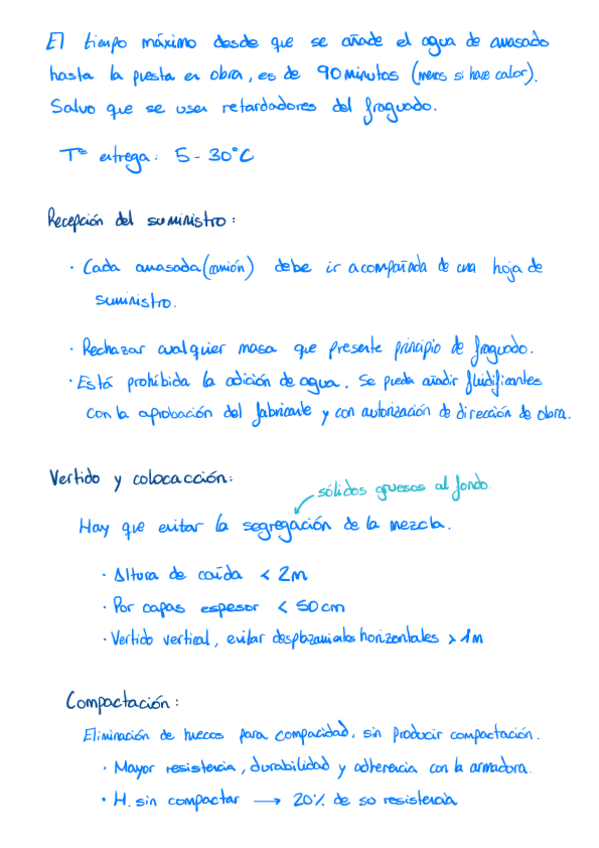 El tiempo máximo desde que se añade el agua de amasado
hasta la puesta en obra, es de 90 minutos (menos si hace calor).
Salvo que se usen retardadores del fraguado.
Tª entrega: 5 - 30°C
Recepción del suministro:
· Cada amasada (camión) debe ir acompañada de una hoja de
suministro.
· Rechazar cualquier masa que presente principio de fraguado.
· Está prohibida la adición de agua. Se puede añadir fluidificantes
con la aprobación del fabricante y con autorización de dirección de obra.
Vertido y colocacción:
sólidos gruesos al fondo.
Hay que evitar la segregación de la mezcla.
· Altura de caída < 2m
· Por capas espesor < 50cm
· Vertido vertical, evitar desplazamientos horizontales > 1m
Compactación:
Eliminación de huecos para compacidad, sin producir compactación.
· Mayor resistencia, durabilidad y adherencia con la armadora.
· H. sin compactar → 20% de so resistencia